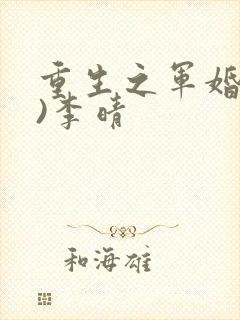 重生之军婚
)李晴
和海雄